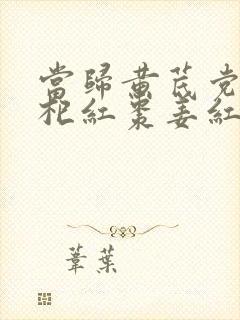 當歸黃芪党
杞紅棗姜紅
葦葉